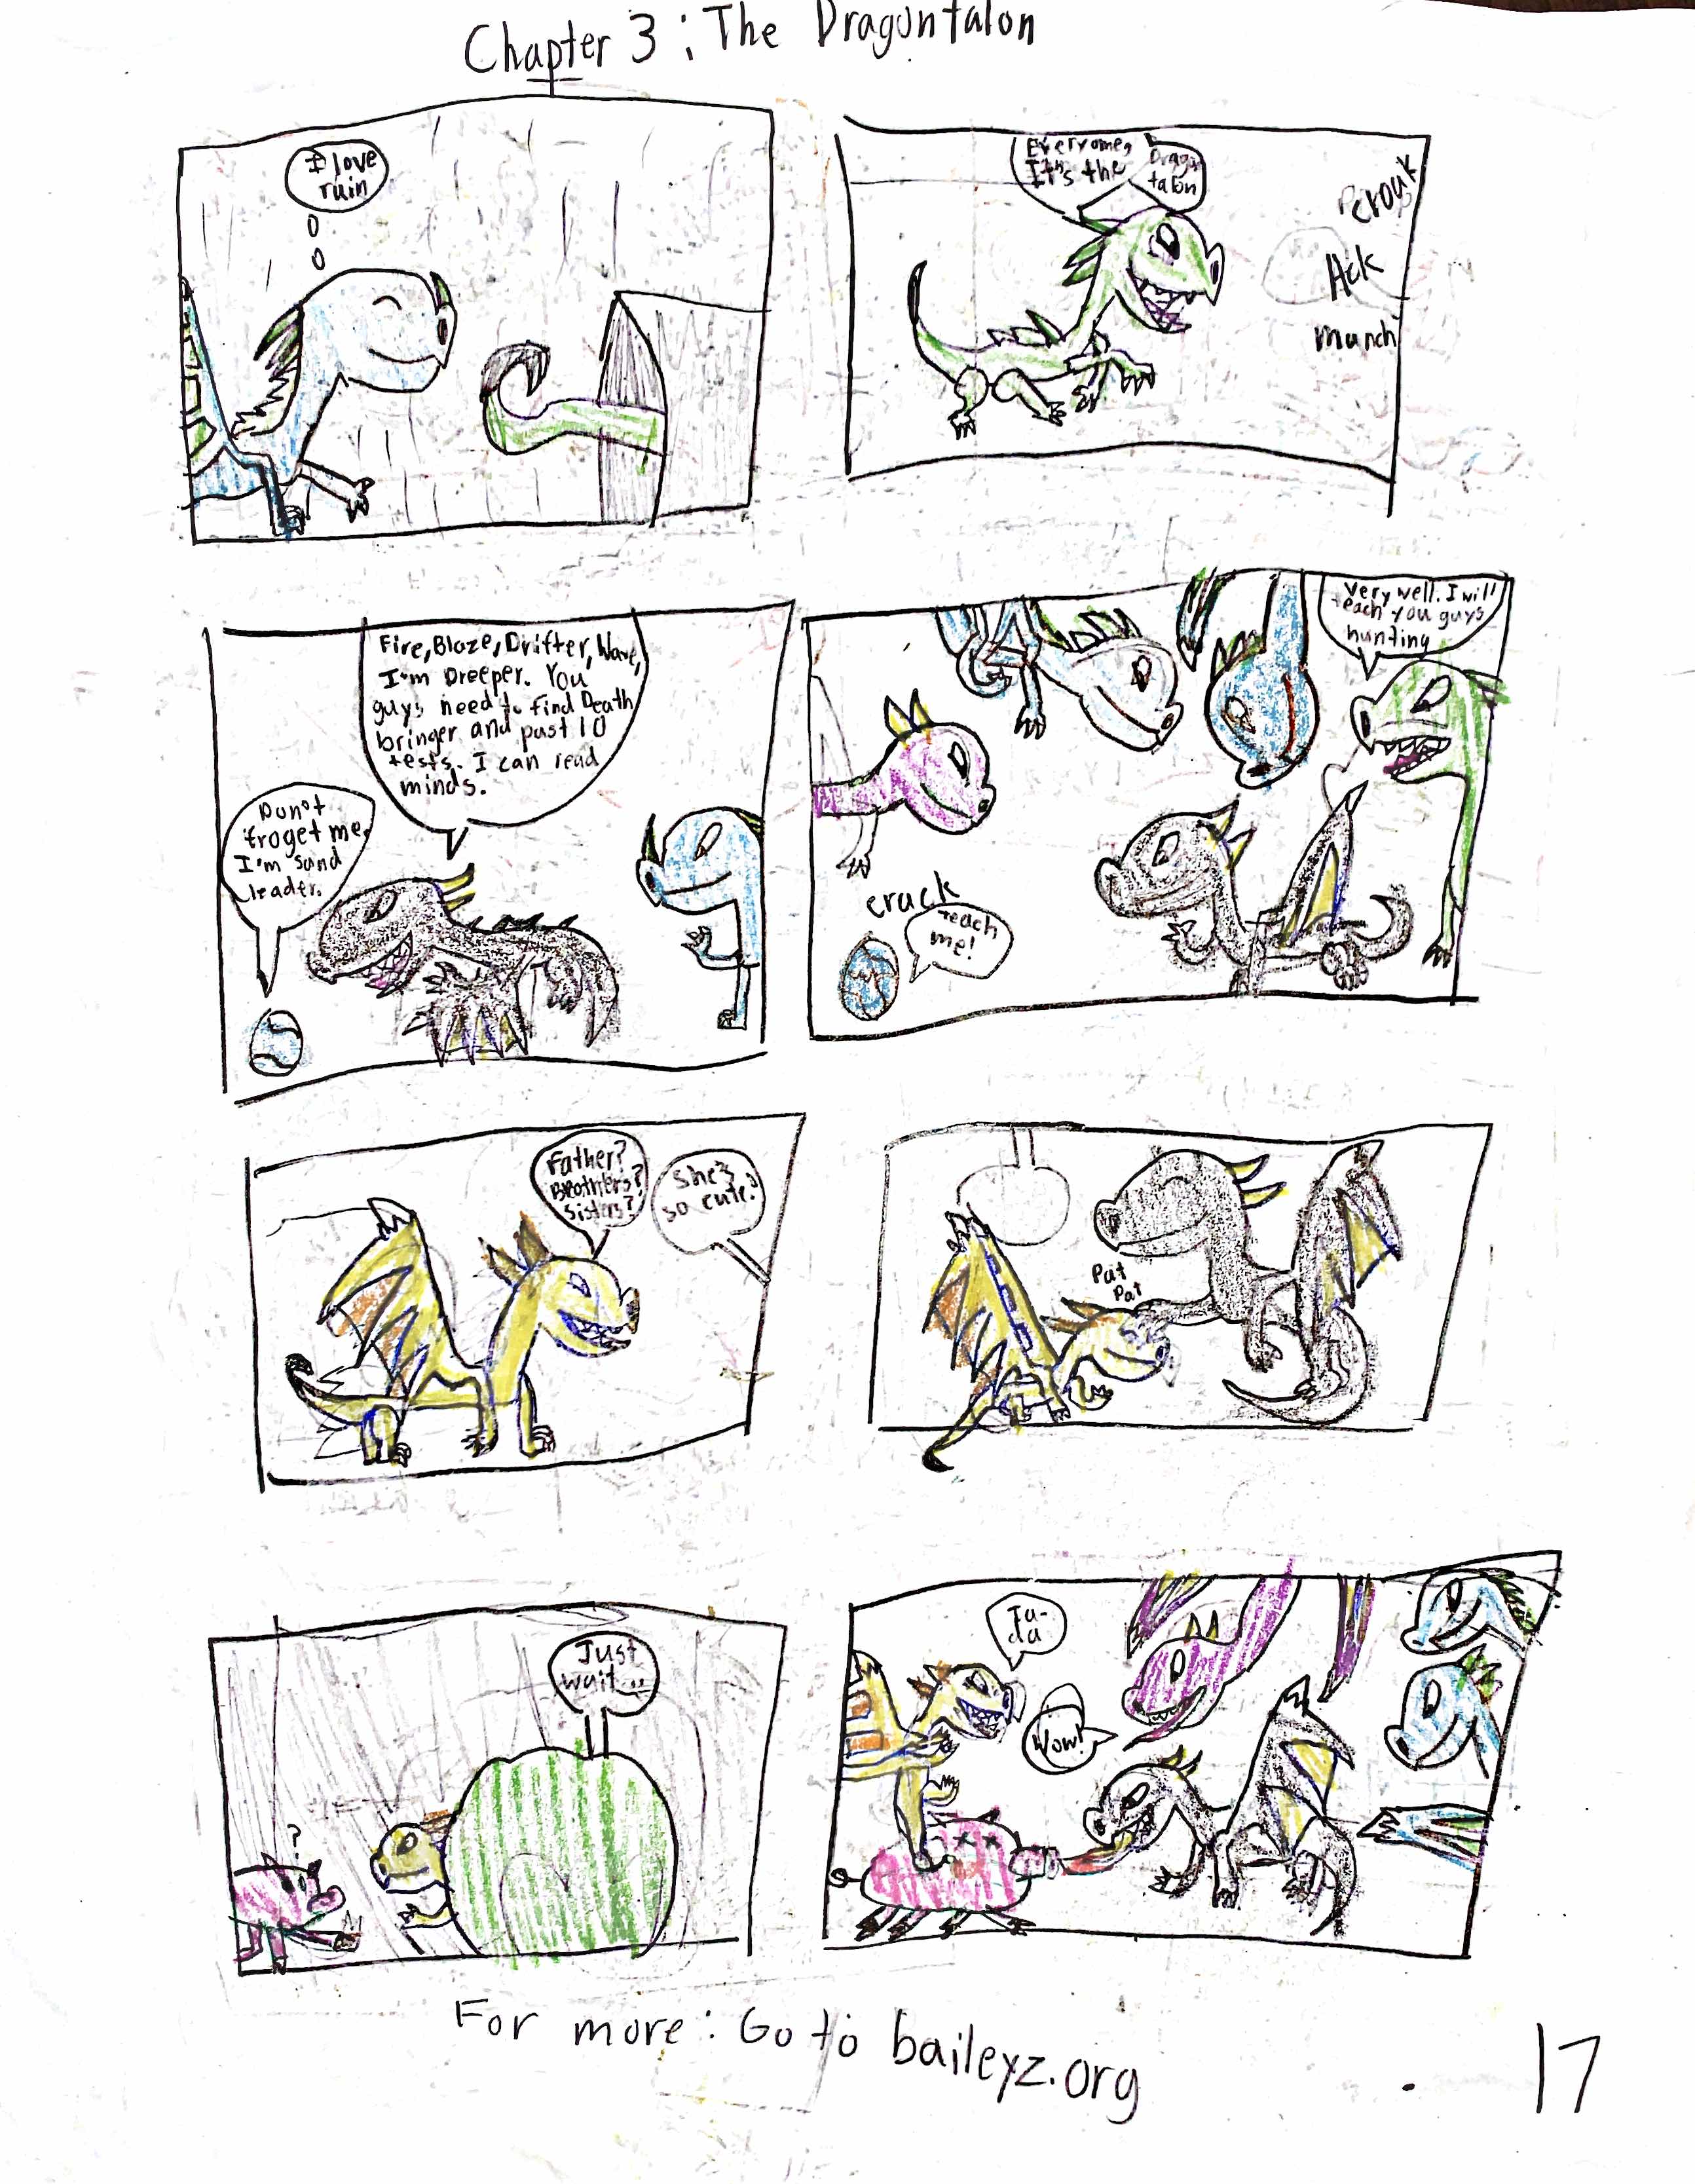 Chapter 3: The Dragontalon
I love
ruin
Everyome,
It's the
Dragon
talon
Crouk
Ack
munch
Fire, Blaze, Drifter, Wave,
I'm Dreeper. You
guys need to find Death
bringer and past 10
tests. I can read
minds.
Don't
froget me,
I'm sand
leader.
Very well. I will
teach you guys
hunting
crack
teach
me!
Father?
Brothers?
Sisters?
She's
so cute!
Pat
Pat
Just
wait...
?
Ta-
da
Wow!
For more: Go to baileyz.org
17